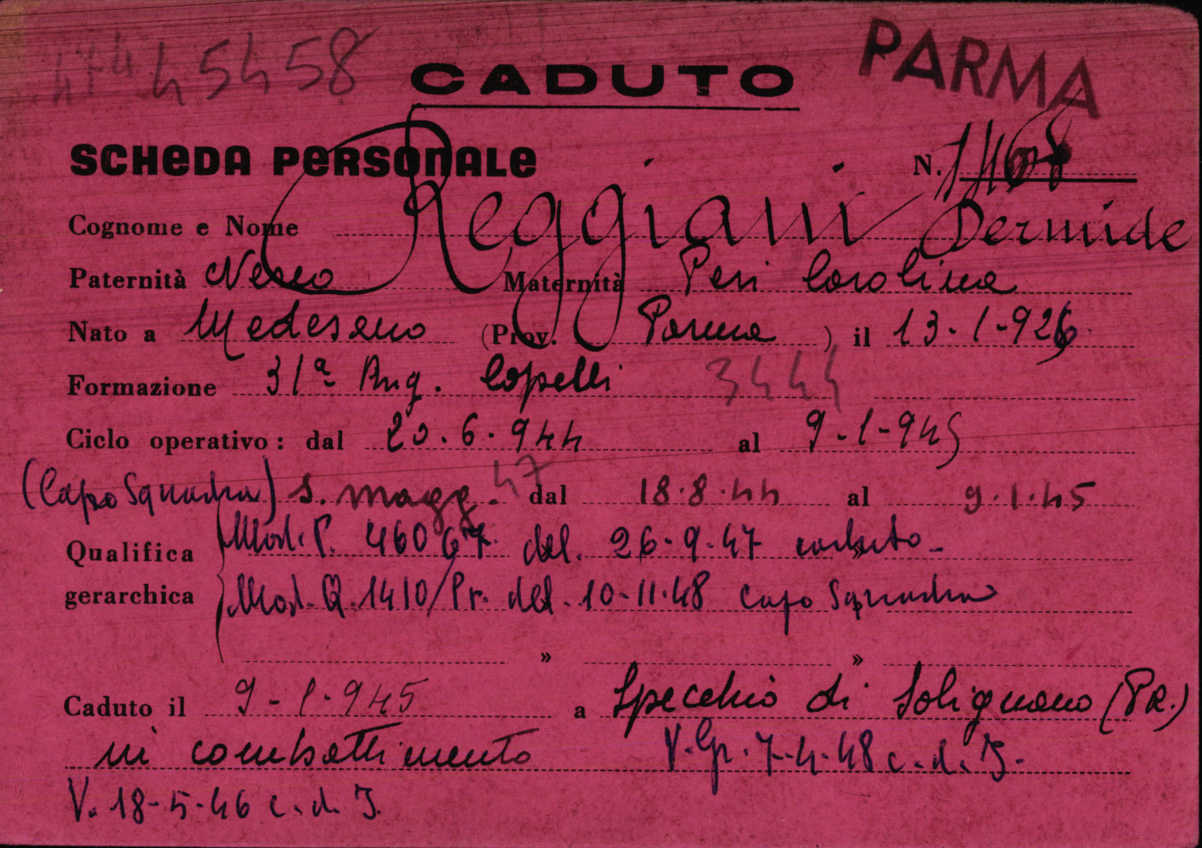 45458
CADUTO
PARMA
SCHEDA PERSONALE N. 1468
Cognome e Nome Reggiani Dermide
Paternità Maternità Peri Carolina
Nato a Medesano (Prov. Parma) il 13-1-926
Formazione 31ª Brig. Copelli 3444
Ciclo operativo: dal 20.6.944 al 9-1-945
(Capo Squadra) s. magg. 47 dal 18.8.44 al 9.1.45
Qualifica gerarchica
Mod. P. 46067 del. 26-9-47
Mod. Q. 1410/Pr. del. 10-11-48 Capo Squadra
» »
Caduto il 9-1-945 a Specchio di Solignano (PR.)
in combattimento V. Gr. 7-4-48 c.d.J.
V. 18-5-46 c.d.J.